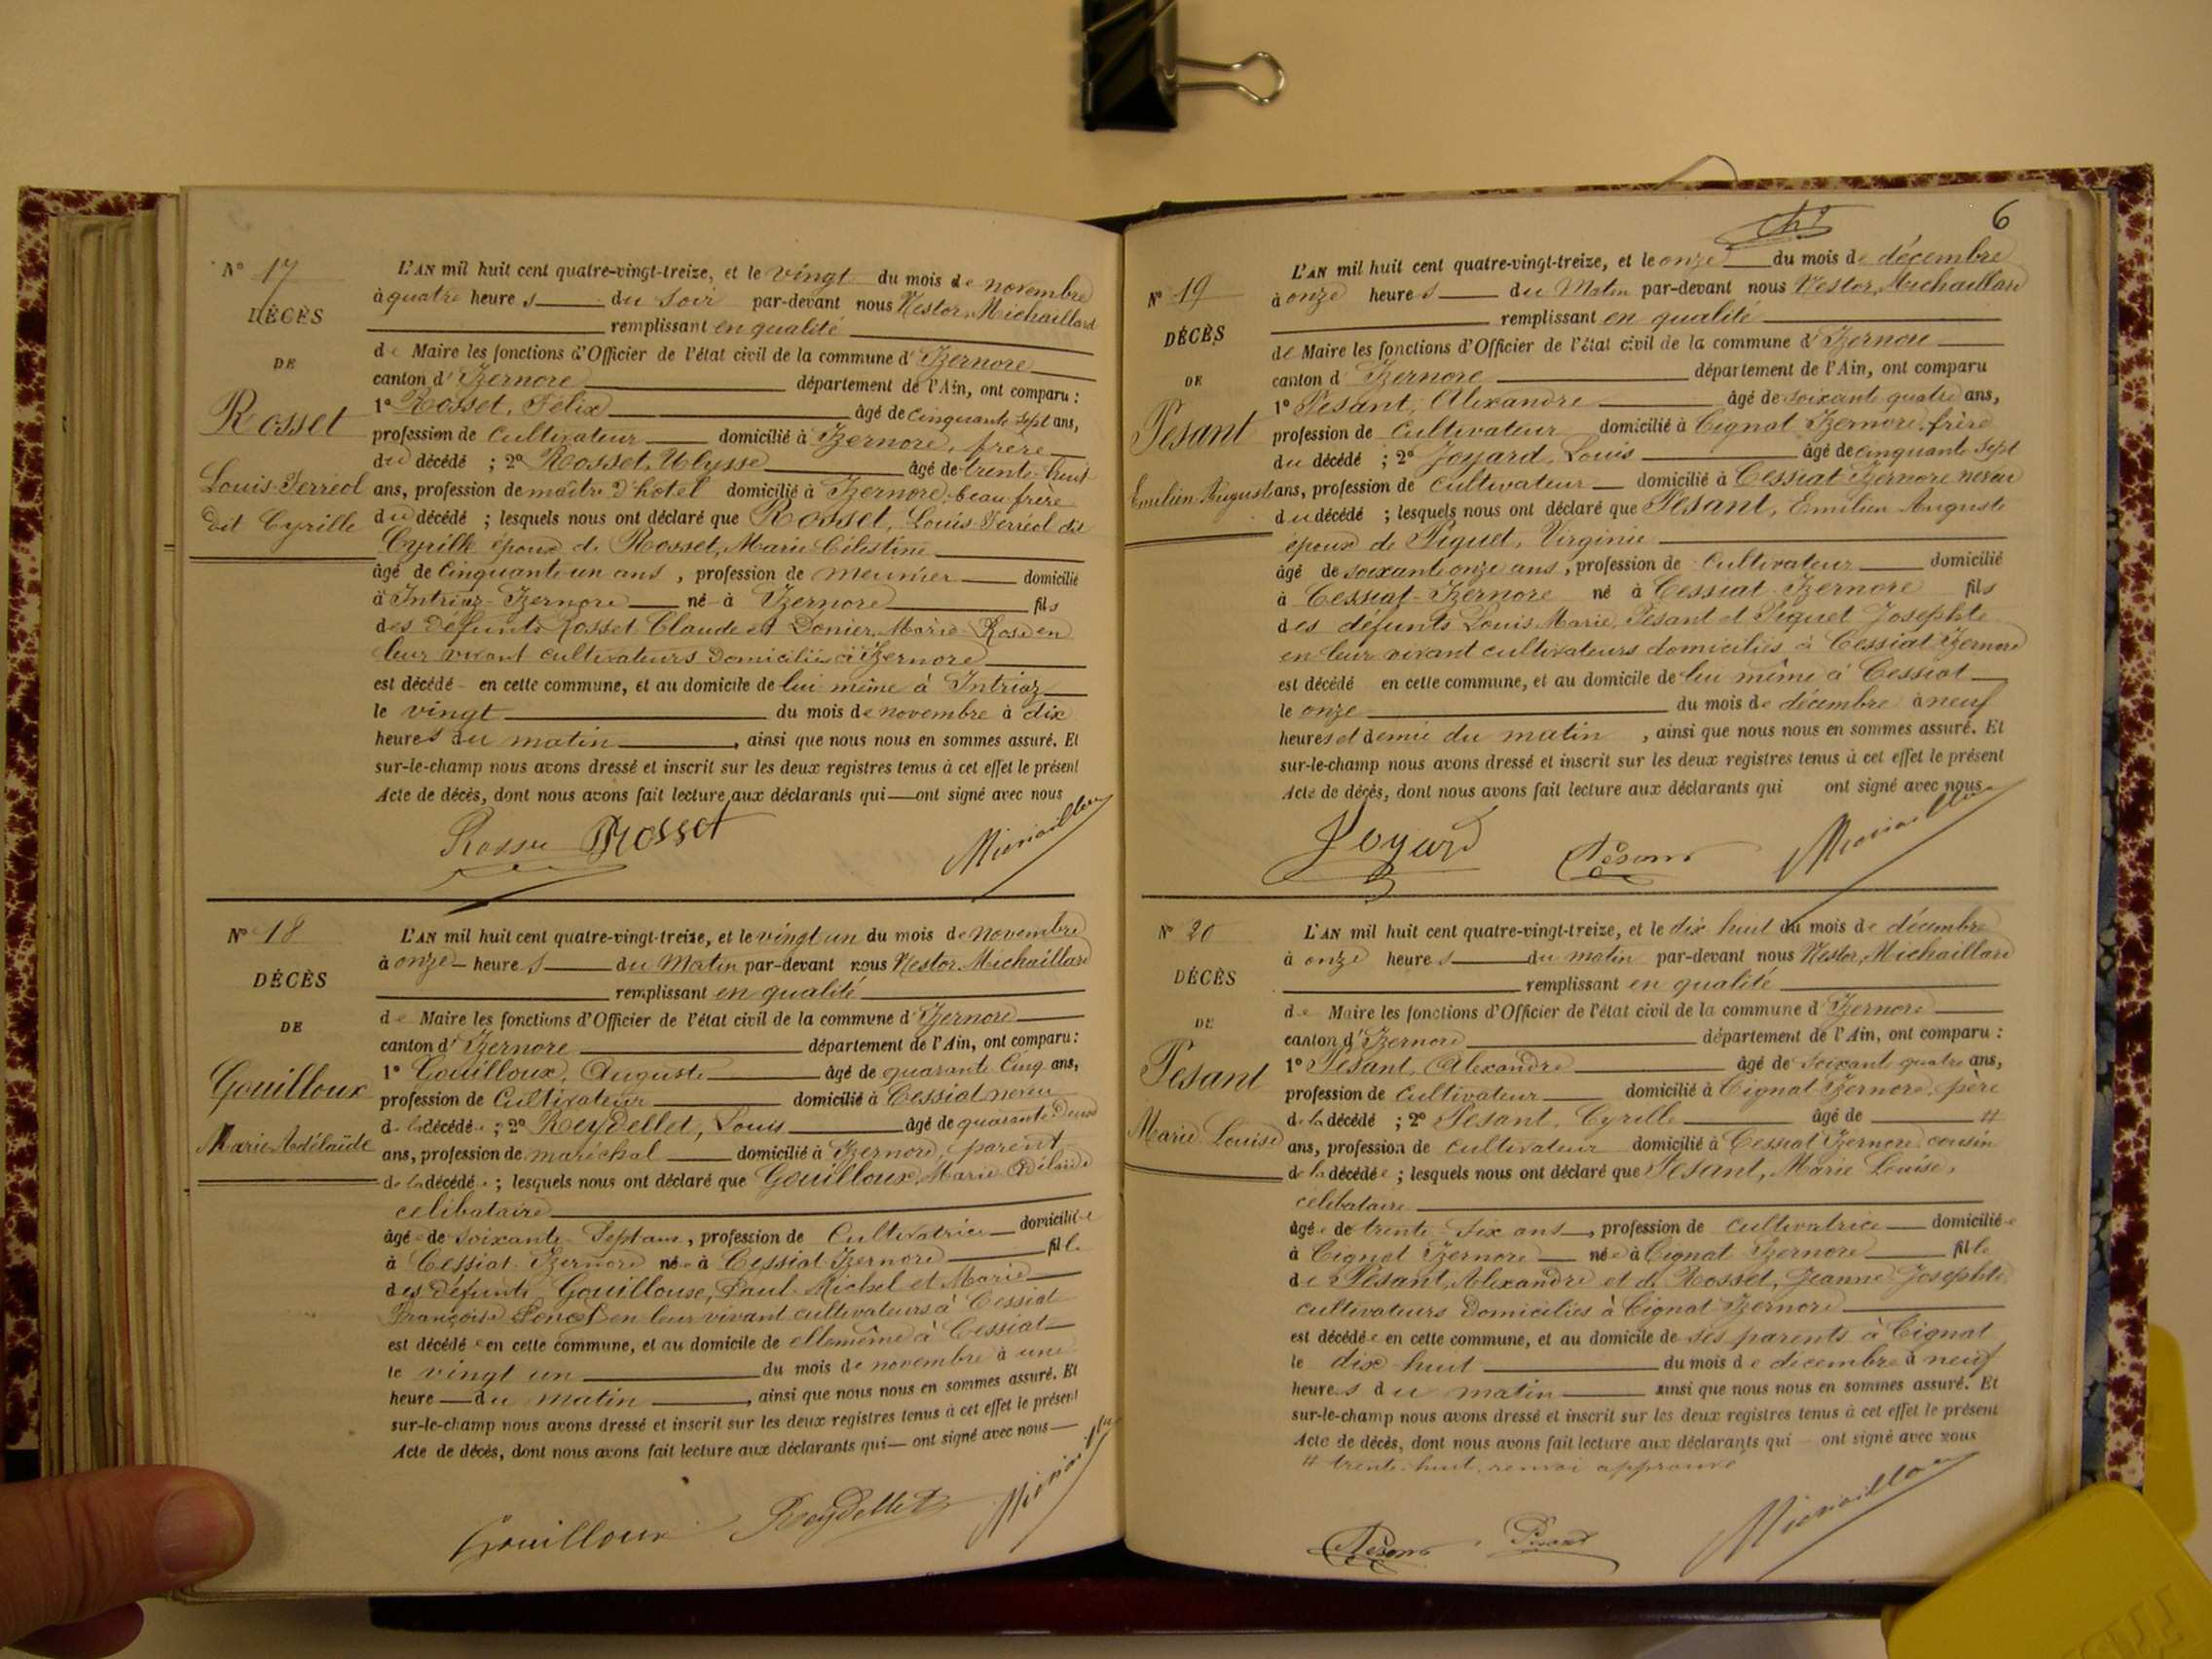 N° 17
DÉCÈS
DE
Rosset
Louis-Ferréol
dit Cyrille
L'AN mil huit cent quatre-vingt-treize, et le vingt du mois de novembre
à quatre heures du soir par-devant nous Nestor Michaillard
remplissant en qualité
de Maire les fonctions d'Officier de l'état civil de la commune d'Izernore
canton d'Izernore département de l'Ain, ont comparu :
1° Rosset, Félix âgé de cinquante sept ans,
profession de cultivateur domicilié à Izernore, frère
du décédé ; 2° Rosset, Ulysse âgé de trente-huit
ans, profession de maître d'hôtel domicilié à Izernore, beau frère
du décédé ; lesquels nous ont déclaré que Rosset, Louis-Ferréol dit
Cyrille époux de Rosset, Marie Célestine
âgé de cinquante un ans, profession de meunier domicilié
à Intriaz-Izernore né à Izernore fils
des défunts Rosset Claude et Donier, Marie Rose en
leur vivant cultivateurs domiciliés à Izernore
est décédé en cette commune, et au domicile de lui même à Intriaz
le vingt du mois de novembre à dix
heures du matin, ainsi que nous nous en sommes assuré. Et
sur-le-champ nous avons dressé et inscrit sur les deux registres tenus à cet effet le présent
Acte de décès, dont nous avons fait lecture aux déclarants qui ont signé avec nous
Rosset Rosset Michaillard
N° 18
DÉCÈS
DE
Gouilloux
Marie-Adélaïde
L'AN mil huit cent quatre-vingt-treize, et le vingt un du mois de novembre
à onze heures du Matin par-devant nous Nestor Michaillard
remplissant en qualité
de Maire les fonctions d'Officier de l'état civil de la commune d'Izernore
canton d'Izernore département de l'Ain, ont comparu :
1° Gouilloux, Auguste âgé de quarante cinq ans,
profession de cultivateur domicilié à Cessiat neveu
de la décédée ; 2° Reydellet, Louis âgé de quarante deux
ans, profession de maréchal domicilié à Izernore, parent
de la décédée ; lesquels nous ont déclaré que Gouilloux, Marie Adélaïde
célibataire
âgée de soixante-sept ans, profession de cultivatrice domiciliée
à Cessiat-Izernore née à Cessiat-Izernore fille
des défunts Gouilloux, Paul-Michel et Marie
Françoise Poncet en leur vivant cultivateurs à Cessiat
est décédée en cette commune, et au domicile de elle même à Cessiat
le vingt un du mois de novembre à une
heure du matin, ainsi que nous nous en sommes assuré. Et
sur-le-champ nous avons dressé et inscrit sur les deux registres tenus à cet effet le présent
Acte de décès, dont nous avons fait lecture aux déclarants qui ont signé avec nous
Gouilloux Reydellet Michaillard
6
N° 19
DÉCÈS
DE
Pesant
Emilien Auguste
L'AN mil huit cent quatre-vingt-treize, et le onze du mois de décembre
à onze heures du Matin par-devant nous Nestor, Michaillard
remplissant en qualité
de Maire les fonctions d'Officier de l'état civil de la commune d'Izernore
canton d'Izernore département de l'Ain, ont comparu
1° Pesant, Alexandre âgé de soixante quatre ans,
profession de cultivateur domicilié à Cignat Izernore, frère
du décédé ; 2° Joyard, Louis âgé de cinquante sept
ans, profession de cultivateur domicilié à Cessiat Izernore neveu
du décédé ; lesquels nous ont déclaré que Pesant, Emilien Auguste
époux de Piquet, Virginie
âgé de soixante onze ans, profession de cultivateur domicilié
à Cessiat-Izernore né à Cessiat-Izernore fils
des défunts Louis Marie Pesant et Piquet Josephte
en leur vivant cultivateurs domiciliés à Cessiat Izernore
est décédé en cette commune, et au domicile de lui même à Cessiat
le onze du mois de décembre à neuf
heures et demie du matin, ainsi que nous nous en sommes assuré. Et
sur-le-champ nous avons dressé et inscrit sur les deux registres tenus à cet effet le présent
Acte de décès, dont nous avons fait lecture aux déclarants qui ont signé avec nous
Joyard Pesant Michaillard
N° 20
DÉCÈS
DE
Pesant
Marie Louise
L'AN mil huit cent quatre-vingt-treize, et le dix huit du mois de décembre
à onze heures du matin par-devant nous Nestor, Michaillard
remplissant en qualité
de Maire les fonctions d'Officier de l'état civil de la commune d'Izernore
canton d'Izernore département de l'Ain, ont comparu :
1° Pesant, Alexandre âgé de soixante quatre ans,
profession de cultivateur domicilié à Cignat Izernore, père
de la décédée ; 2° Pesant, Cyrille âgé de #
ans, profession de cultivateur domicilié à Cessiat Izernore cousin
de la décédée ; lesquels nous ont déclaré que Pesant, Marie Louise,
célibataire
âgée de trente six ans, profession de cultivatrice domiciliée
à Cignat Izernore née à Cignat Izernore fille
de Pesant, Alexandre et de Rosset, Jeanne Josephte
cultivateurs domiciliés à Cignat Izernore
est décédée en cette commune, et au domicile de ses parents à Cignat
le dix huit du mois de décembre à neuf
heures du matin ainsi que nous nous en sommes assuré. Et
sur-le-champ nous avons dressé et inscrit sur les deux registres tenus à cet effet le présent
Acte de décès, dont nous avons fait lecture aux déclarants qui ont signé avec nous
# trente-huit, renvoi approuvé
Pesant Pesant Michaillard